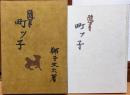 町ッ子
獅子文六著
町ッ子